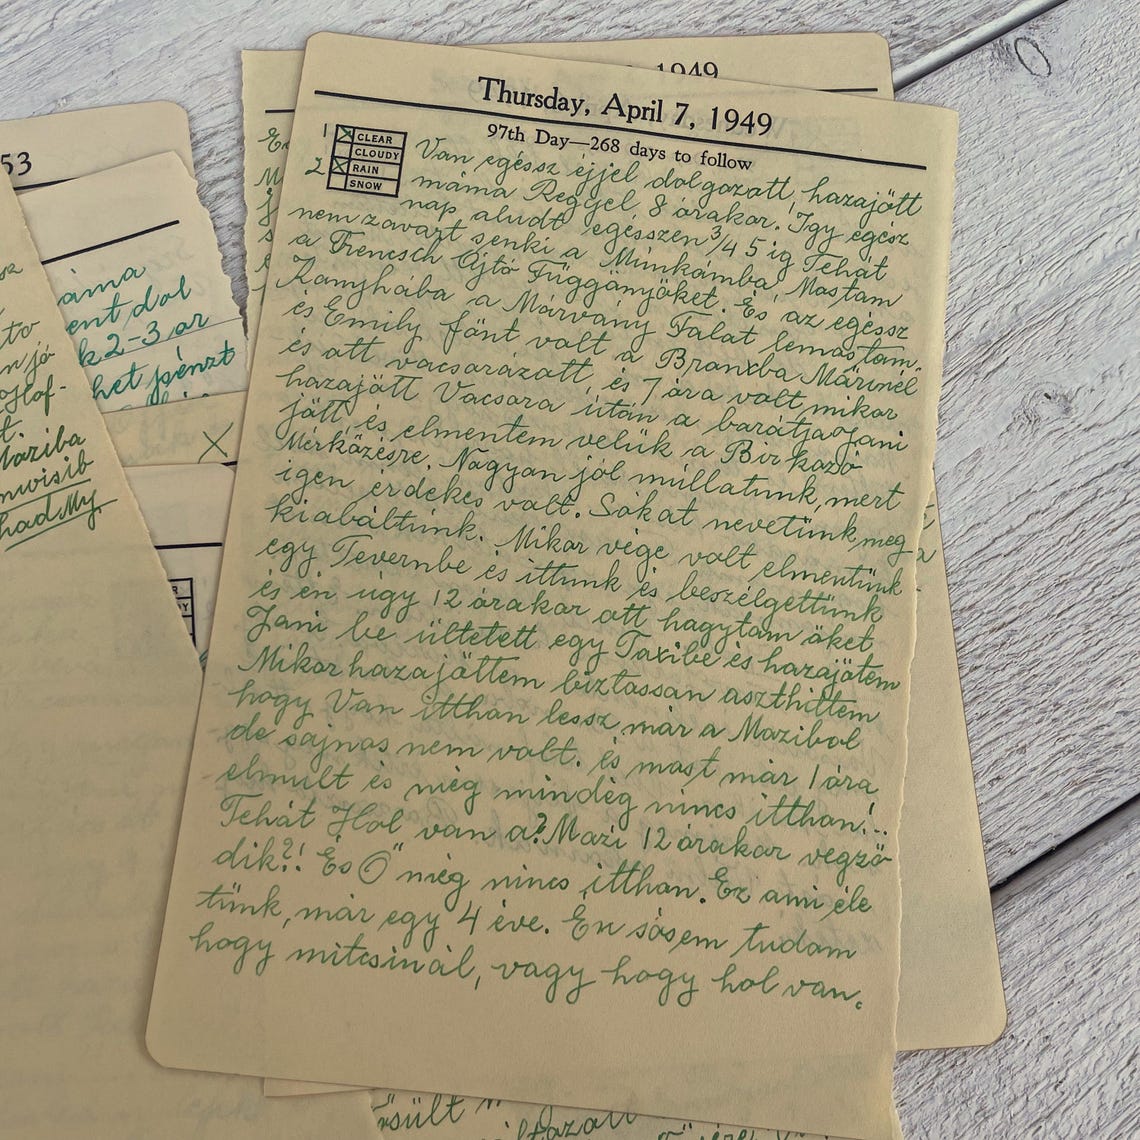 1949
Thursday, April 7, 1949
97th Day—268 days to follow
1 CLEAR
CLOUDY
2 RAIN
SNOW
Van egéssz éjjel dolgozott, hazajött
máma Reggel, 8 órakor. Így egész
nap aludt egésszen 3/4 5 ig Tehát
nem zavart senki a Munkámba, Mostam
a Frencsch Ajtó Függönyöket. És az egéssz
Konyhába a Márvány Falat lemostam.
és Emily fönt volt a Branxba Märinél
és ott vacsorázott, és 7 óra volt mikor
hazajött Vacsora után a barátja Jani
jött, és elmentem velük a Birkozó
Mérkőzésre. Nagyon jól mullatunk, mert
igen érdekes volt. Sokat nevetünk, meg
kiabáltunk. Mikor vége volt elmentünk
egy Tevernbe és ittunk és beszélgettünk
és én úgy 12 órakor ott hagytam őket
Jani be ültetett egy Taxibe és hazajötem
Mikor hazajöttem biztossan aszthittem
hogy Van itthon lessz már a Moziból
de sajnos nem volt. és most már 1 óra
elmult és még mindég nincs itthon!..
Tehát Hol van a? Mozi 12 órakor végző-
dik?! És Ő még nincs itthon. Ez ami éle
tünk, már egy 4 éve. Én sósem tudom
hogy mitcsinál, vagy hogy hol van.
53
áma
ent dol
k 2-3 or
het pénzt
to
n jó
t
Moziba
had My